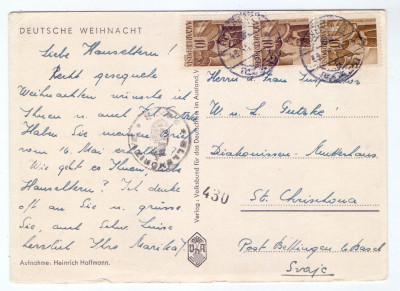 DEUTSCHE WEIHNACHT
Liebe Hauseltern!
Recht gesegnete
Weihnachten wünsche ich
Ihnen u. auch
Haben Sie meinen Brief
vom 16. Mai
Wie geht es Ihnen, liebe
Hauseltern? Ich denke
oft an Sie u. grüsse
Sie, auch Schw. Luise
herzlich Ihre Marika!
Aufnahme: Heinrich Hoffmann.
Verlag: Volksbund für das Deutschtum im Ausland,
ELLENŐRIZVE
430
VDA
10
10
10
Herrn u. Frau
W. u. L. Gutzke!
Diakonissen-Mutterhaus
St. Chrischona
Post Bettingen b/Basel
Svájc